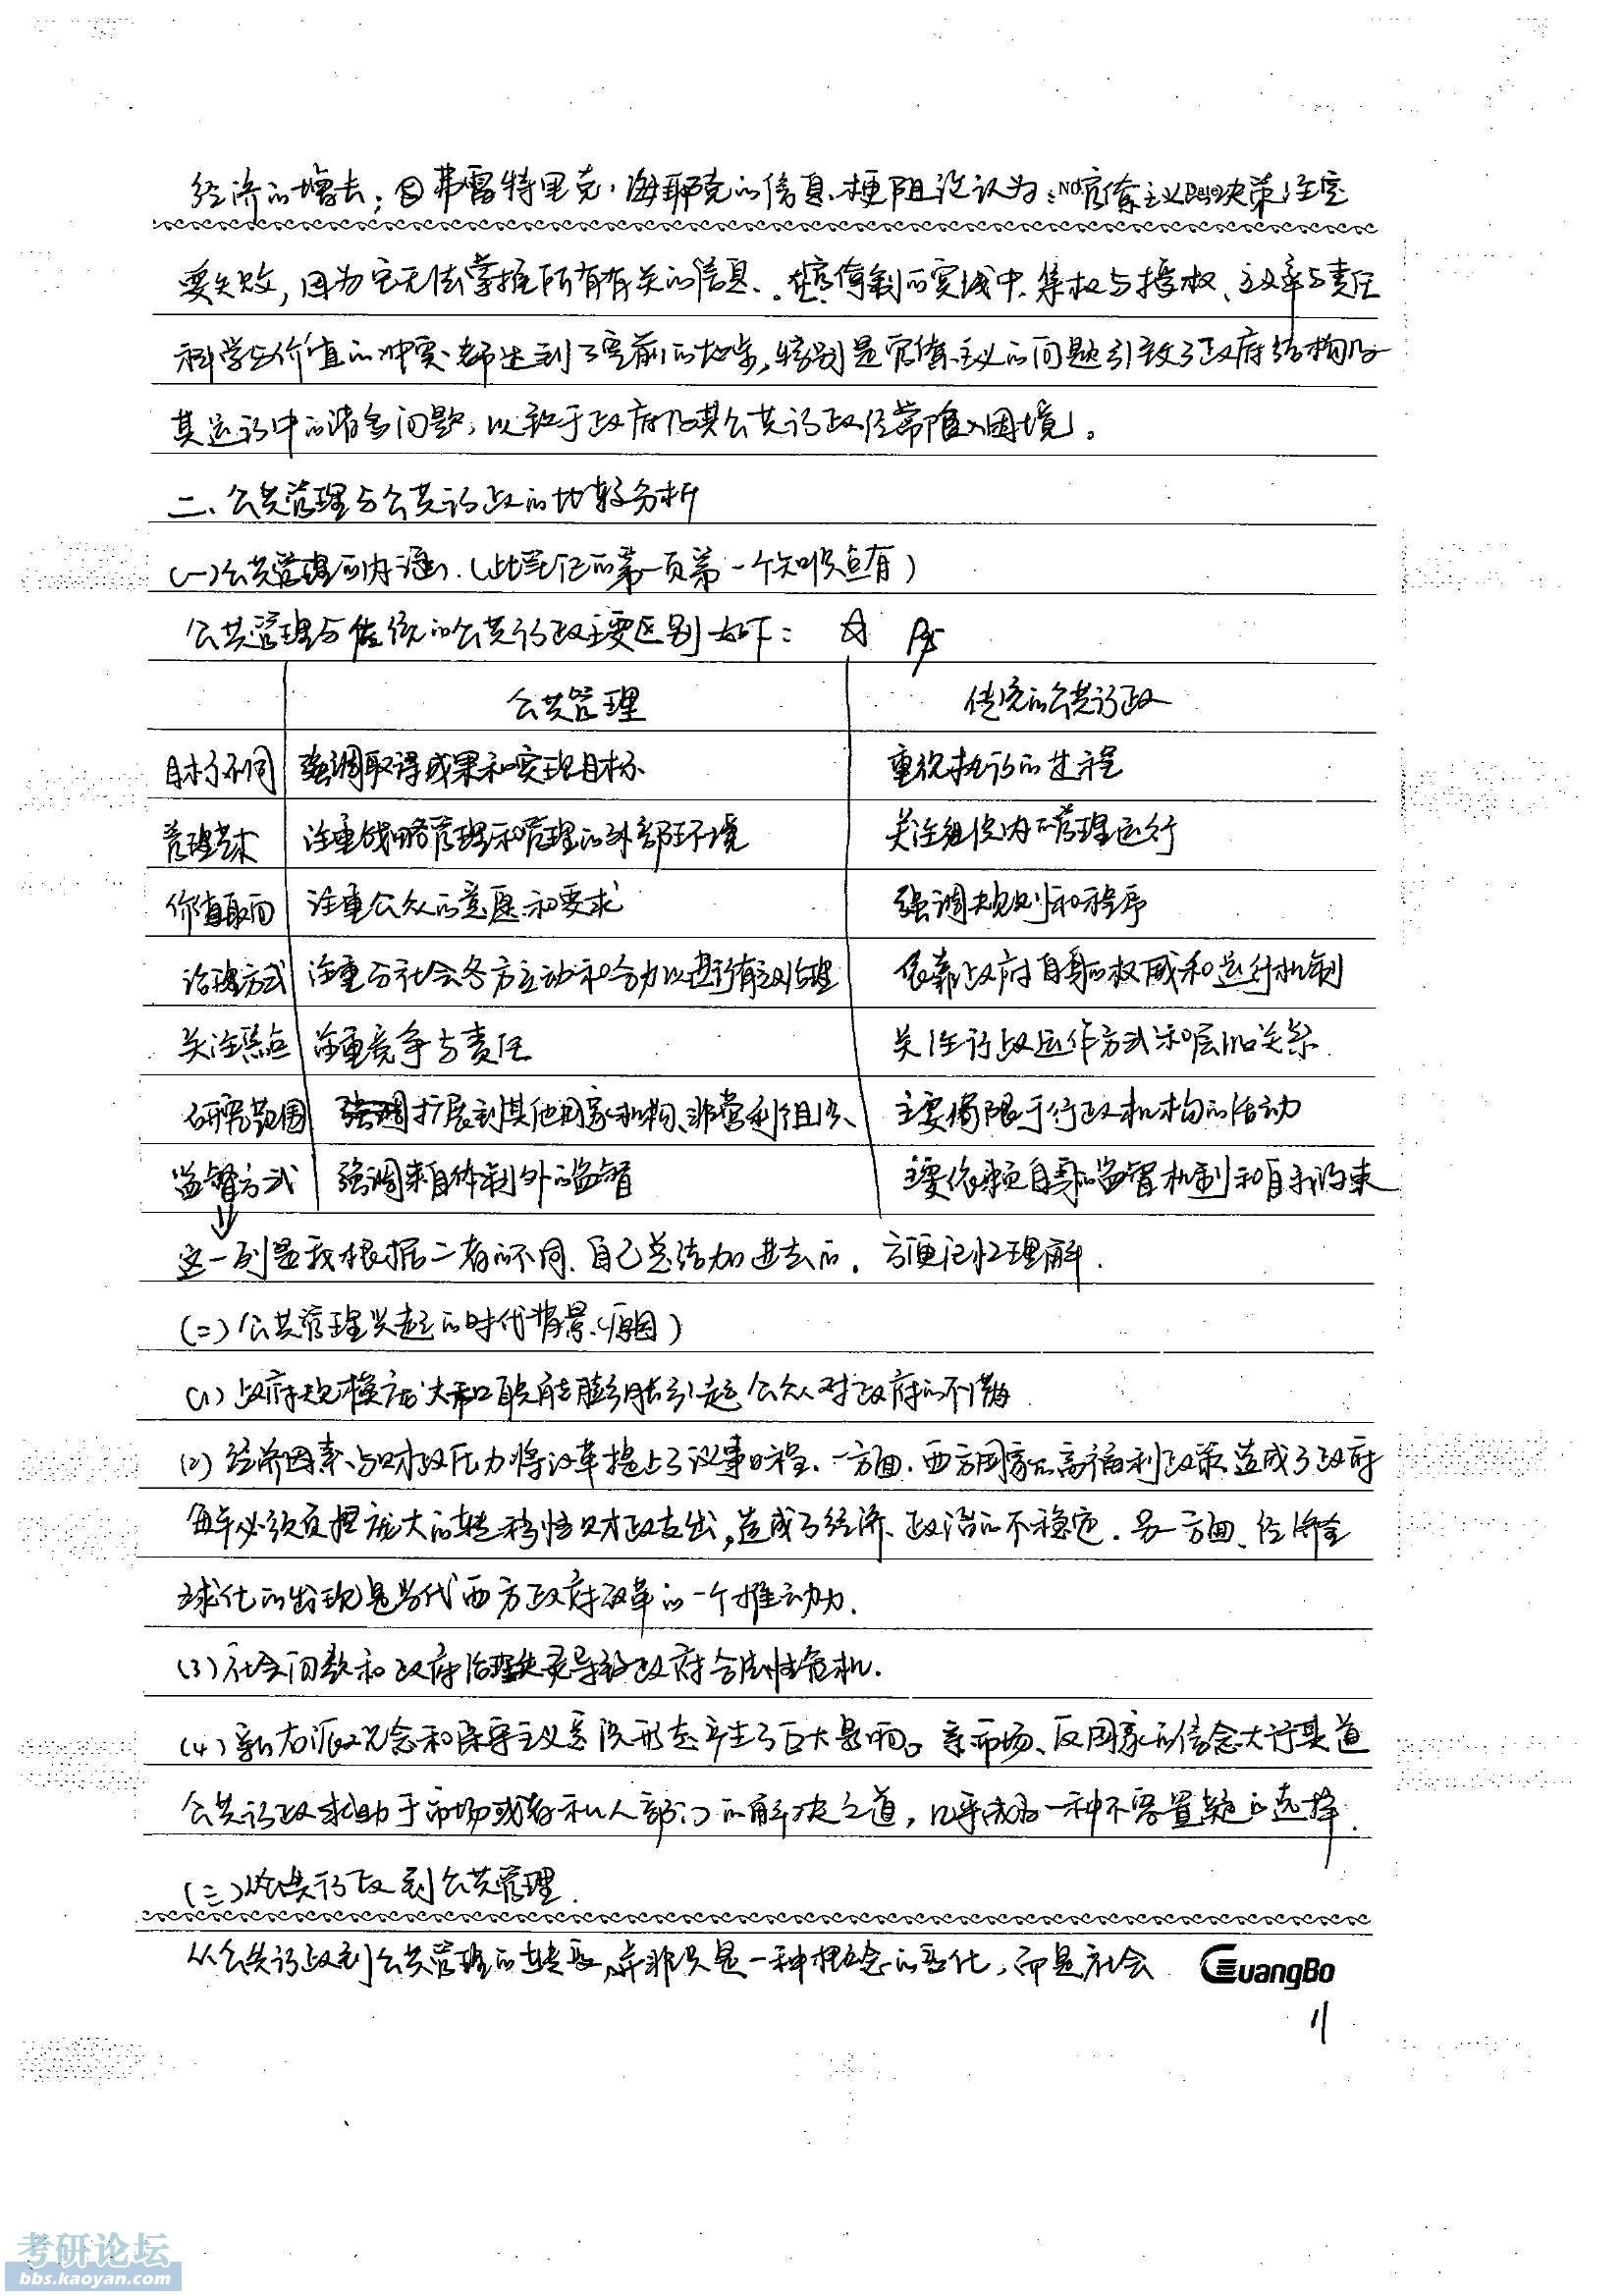 经济的增长；④弗雷特里克·海耶克的信息梗阻说认为：官僚主义的决策注定
NO. Date
要失败，因为它无法掌握所有有关的信息。在官僚制的实践中，集权与授权、效率与责任
科学与价值的冲突都达到了空前的地步，特别是官僚主义的问题引致了政府结构及
其运行中的诸多问题，以致于政府及其公共行政经常陷入困境。
二、公共管理与公共行政的比较分析
(一)公共管理的内涵.(此笔记的第一页第一个知识点有)
公共管理与传统的公共行政主要区别如下： ☆
公共管理 传统的公共行政
目标不同 强调取得成果和实现目标 重视执行的过程
管理艺术 注重战略管理和管理的外部环境 关注组织内的管理运行
价值取向 注重公众的意愿和要求 强调规则和程序
治理方式 注重与社会各方互动和合力以进行有效治理 依靠政府自身的权威和运行机制
关注焦点 注重竞争与责任 关注行政运作方式和层级关系.
研究范围 扩展到其他国家机构、非营利组织、 主要局限于行政机构的活动
监督方式 强调来自体制外的监督 主要依赖自身的监督机制和自我约束
这一列是我根据二者的不同，自己总结加进去的，方便记忆理解.
(二)公共管理兴起的时代背景(原因)
(1)政府规模庞大和职能膨胀引起公众对政府的不满
(2)经济因素与财政压力将改革提上了议事日程.一方面.西方国家的高福利政策造成了政府
每年必须负担庞大的转移性财政支出,造成了经济、政治的不稳定.另一方面、经济全
球化的出现是当代西方政府改革的一个推动力.
(3)社会问题和政府治理失灵导致政府合法性危机.
(4)新右派观念和保守主义意识形态产生了巨大影响。亲市场、反国家的信念大行其道
公共行政求助于市场或者私人部门的解决之道，几乎成为一种不容置疑的选择.
(三)从公共行政到公共管理.
从公共行政到公共管理的转变,并非只是一种概念的变化，而是社会
GuangBo
11
考研论坛
bbs.kaoyan.com